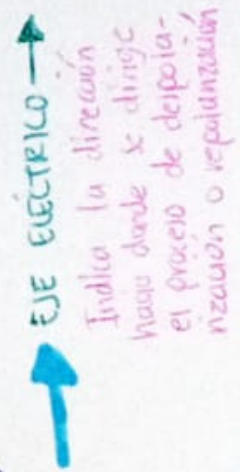 EJE ELÉCTRICO
Indica la dirección
hacia donde se dirige
el proceso de depola-
rización o repolarización